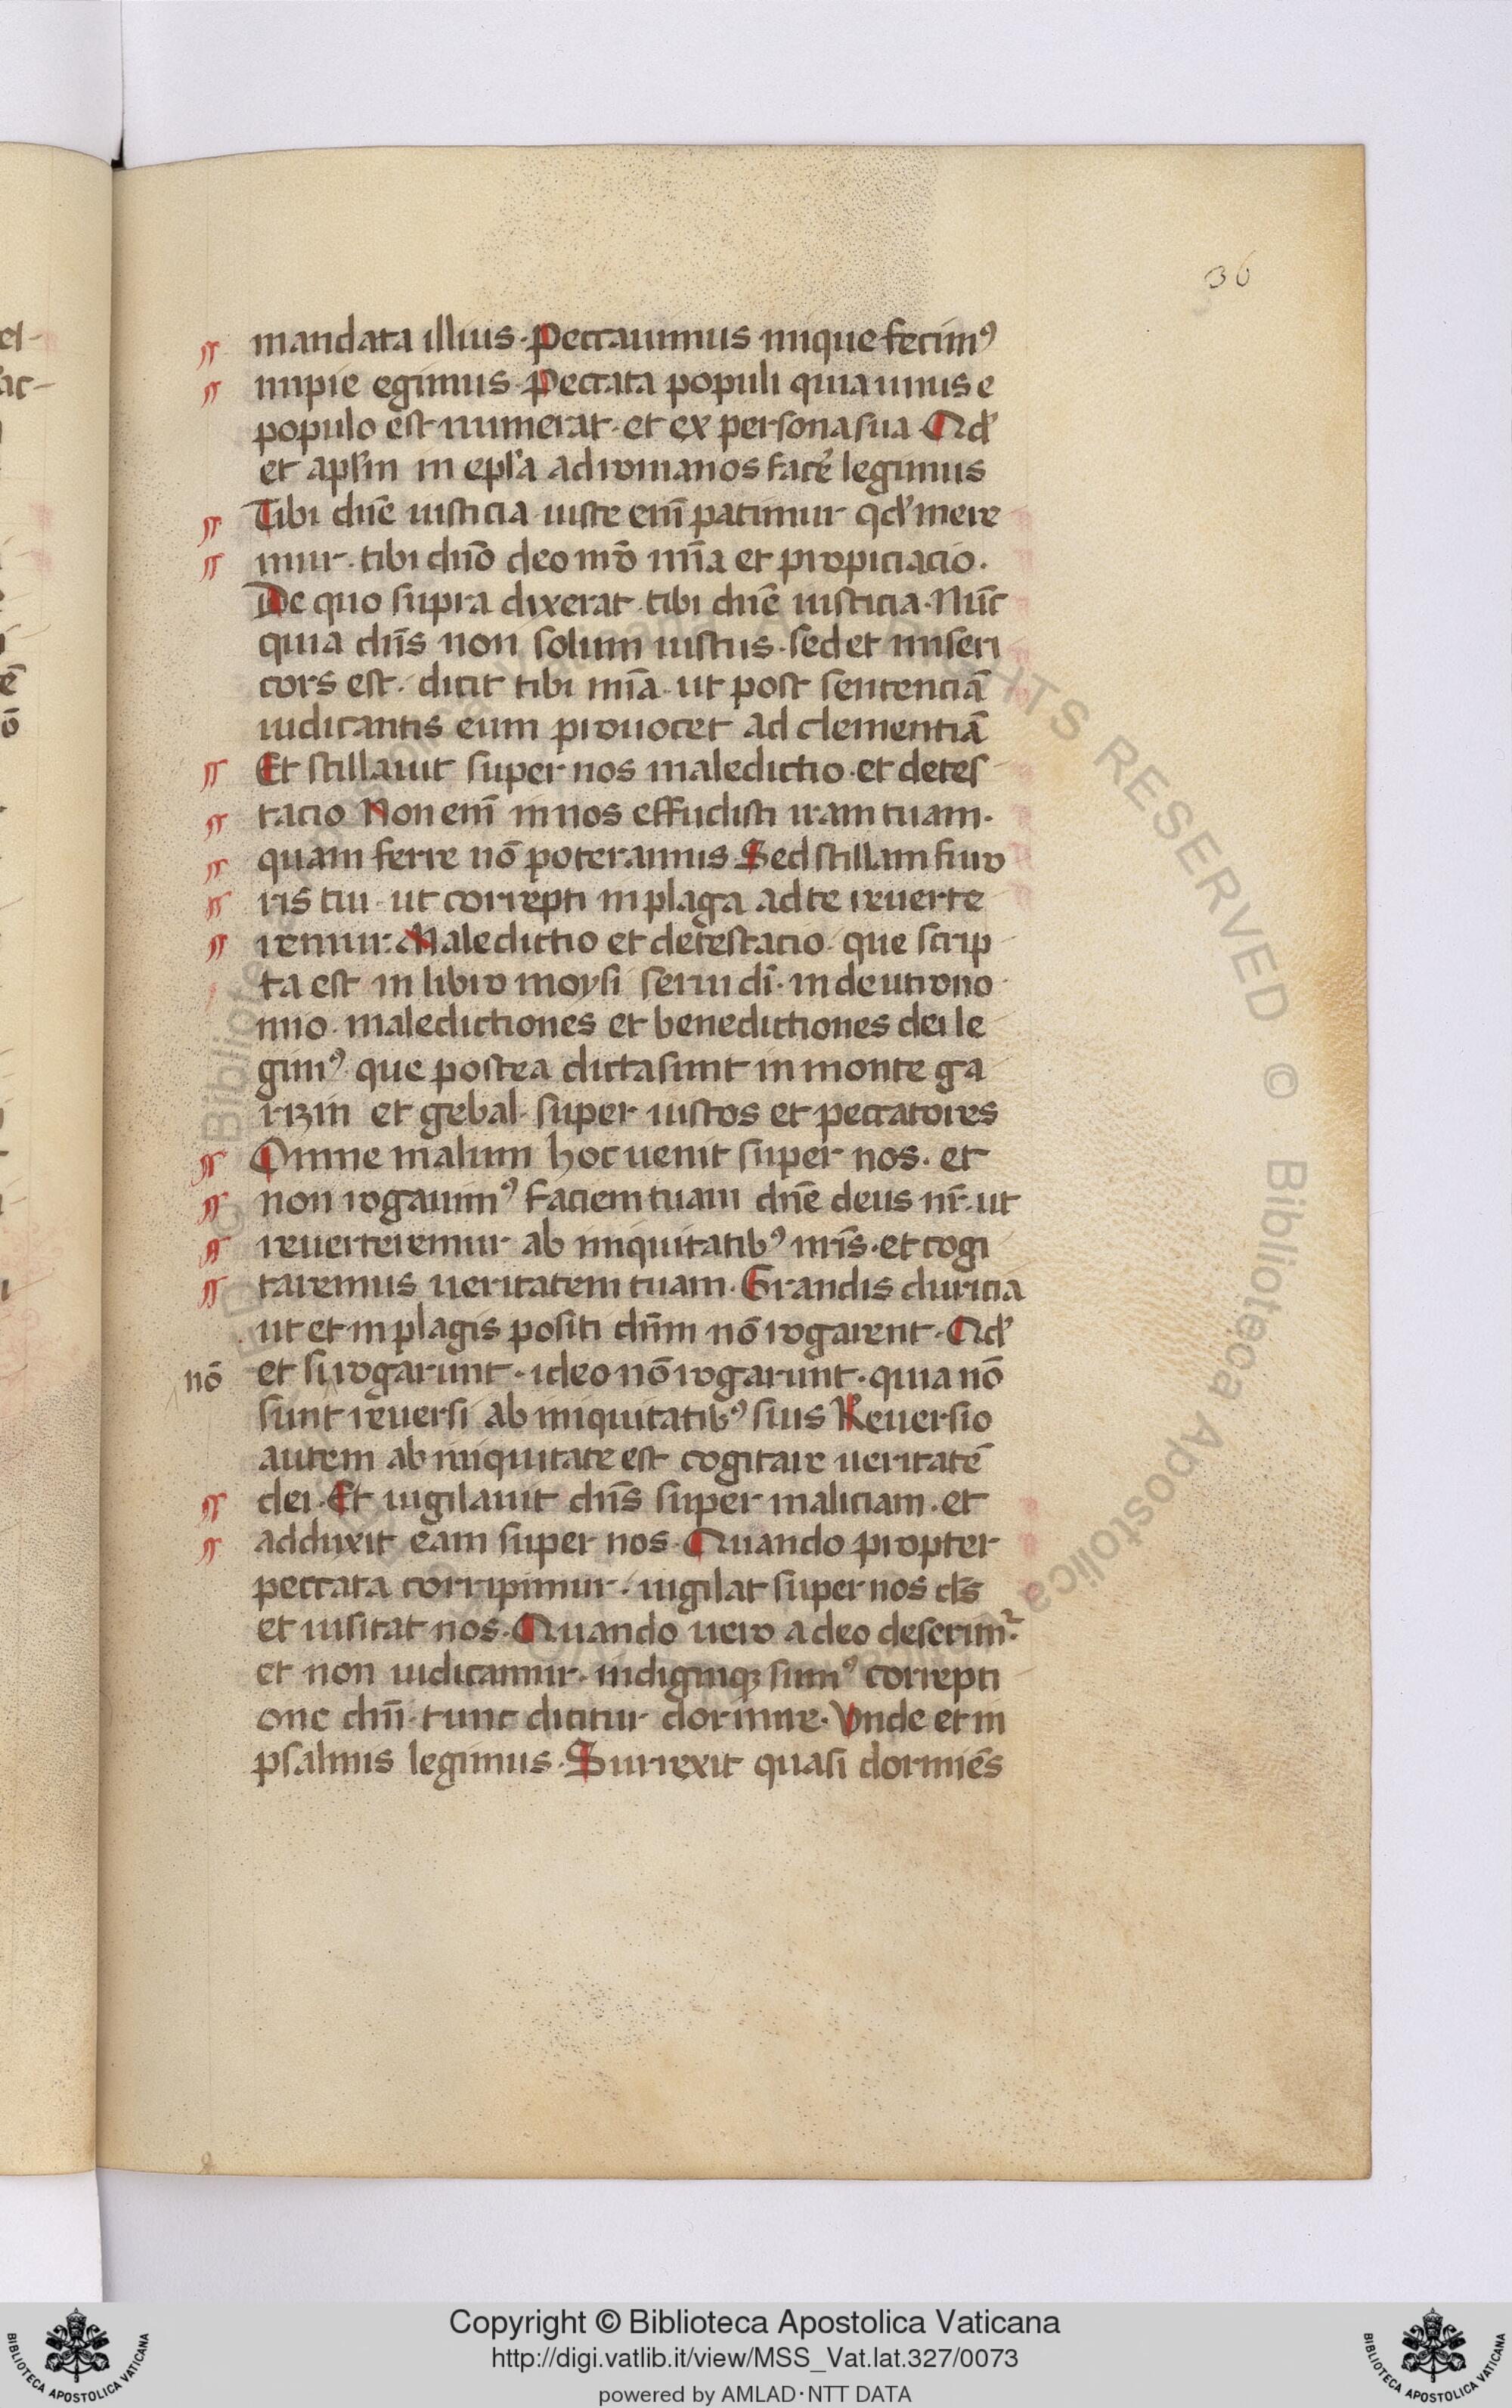 36
mandata illius. Peccauimus inique fecim⁹
impie egimus. Peccata populi quia unus e
populo est numerat. et ex persona sua. Qd'
et apl'm in epl'a ad romanos face᷒ legimus
Tibi dn̄e iusticia iuste enī patimur qd' mere
mur. tibi dn̄o deo nr̄o mīa et propiciacio.
De quo supra dixerat tibi dn̄e iusticia. Nūc
quia dn̄s non solum iustus. sed et miseri
cors est. dicit tibi mīa. ut post sentenciā
iudicantis eum prouocet ad clementiā
Et stillauit super nos maledictio. et detes
tacio Non enī in nos effudisti iram tuam.
quam ferre nō poteramus. Sed stillam furo
ris tui. ut correpti in plaga ad te reuerte
remur. Maledictio et detestacio. que scrip
ta est in libro moysi serui dī. in deutrono
mio. maledictiones et benedictiones dei le
gim⁹ que postea dicta sunt in monte ga
rizin et gebal. super iustos et peccatores
Omne malum hoc uenit super nos. et
non rogauim⁹ faciem tuam dn̄e deus nr̄. ut
reuerteremur ab iniquitatib⁹ nr̄is. et cogi
taremus ueritatem tuam. Grandis duricia
ut et in plagis positi dn̄m nō rogarent. Qd'
nō et si rogarunt. ideo nō rogarunt. quia nō
sunt reuersi ab iniquitatib⁹ suis Reuersio
autem ab iniquitate est cogitare ueritatē
dei. Et uigilauit dn̄s super maliciam. et
adduxit eam super nos. Quando propter
peccata corripimur. uigilat super nos ds̄
et uisitat nos. Quando uero a deo deserim᷒.
et non iudicamur. indigniqꝫ sum⁹ correpti
one dn̄i. tunc dicitur dormire. Vnde et in
psalmis legimus. Surrexit quasi dormiēs
Copyright © Biblioteca Apostolica Vaticana
http://digi.vatlib.it/view/MSS_Vat.lat.327/0073
powered by AMLAD·NTT DATA
BIBLIOTECA APOSTOLICA VATICANA
BIBLIOTECA APOSTOLICA VATICANA